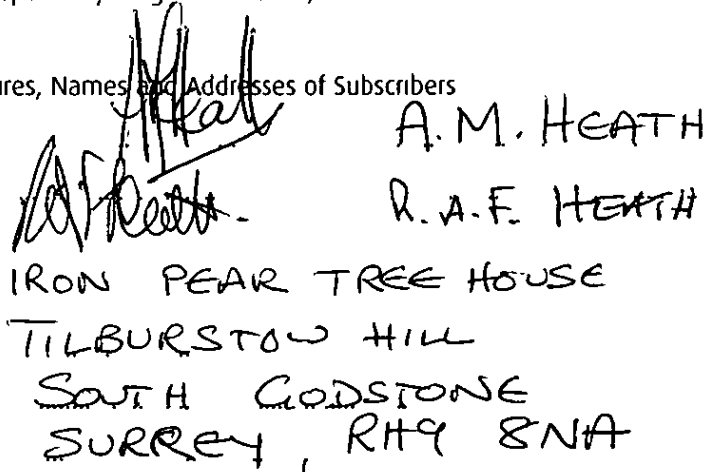 ures, Names and Addresses of Subscribers
A.M. HEATH
R.A.F. HEATH
IRON PEAR TREE HOUSE
TILBURSTOW HILL
SOUTH GODSTONE
SURREY, RH9 8NA